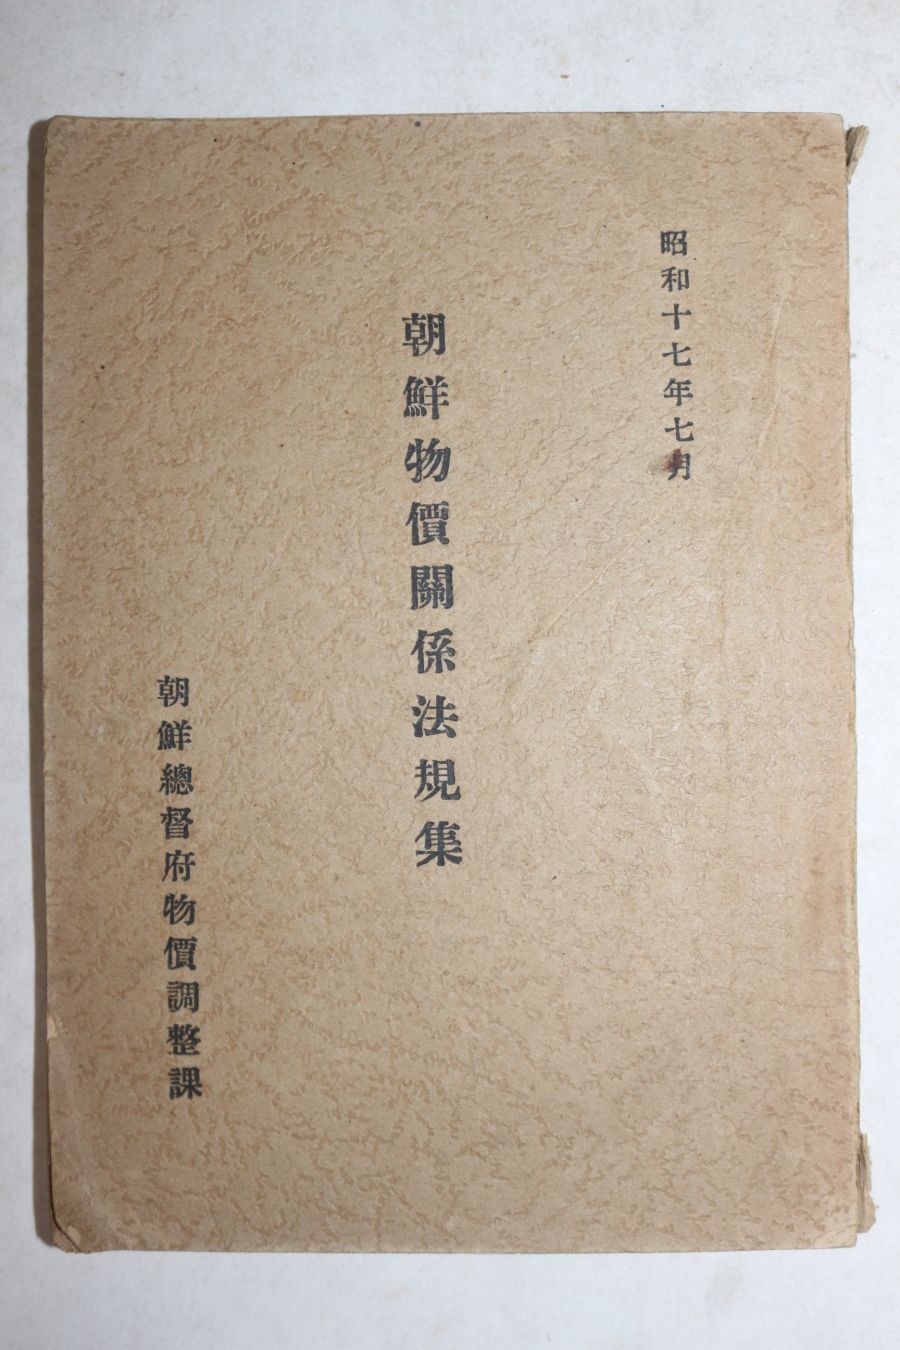 昭和十七年七月
朝鮮物價關係法規集
朝鮮總督府物價調整課